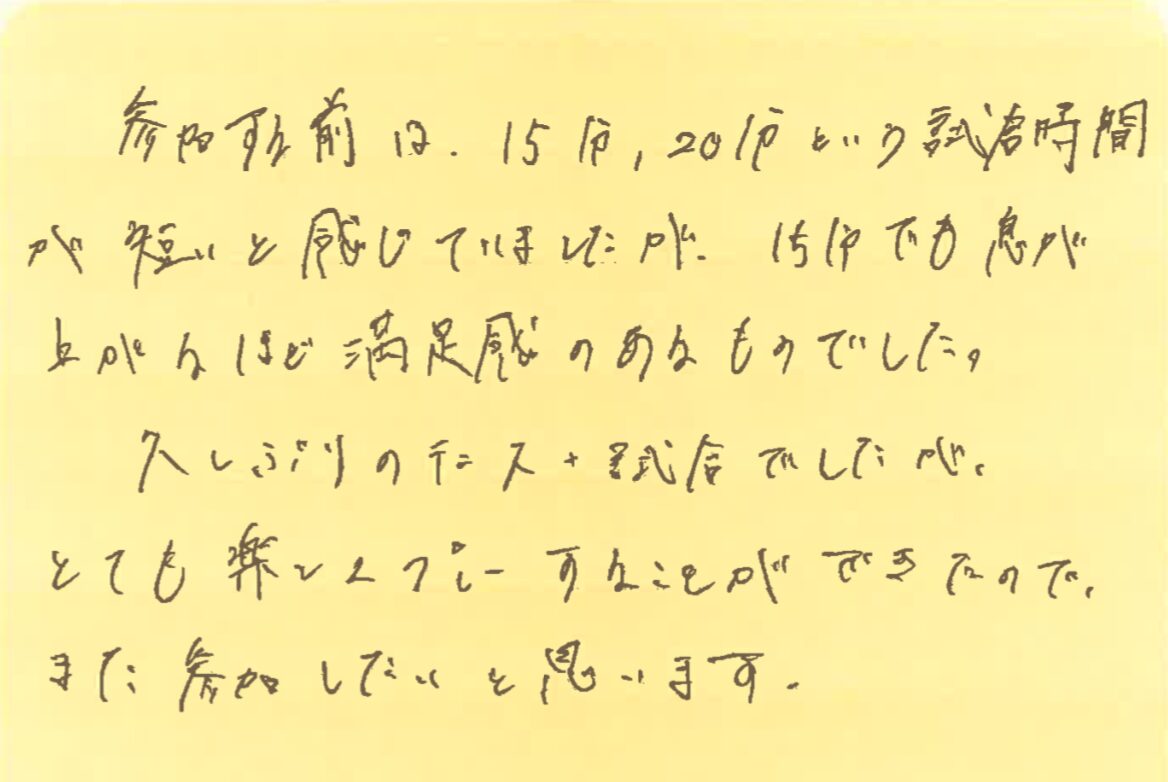 参加する前は、15分,20分という試合時間
が短いと感じていましたが、15分でも息が
上がるほど満足感のあるものでした。
久しぶりのテニス・試合でしたが、
とても楽しくプレーすることができたので、
また参加したいと思います。